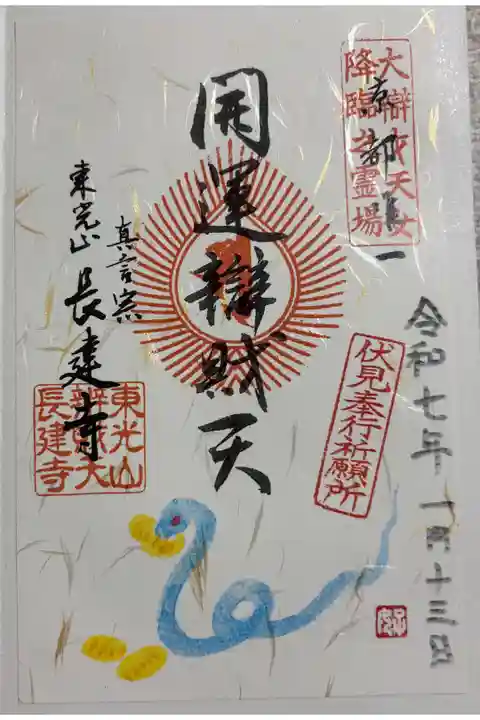 大辯才天女
降臨之霊場
京都唯一
令和七年一月十三日
伏見奉行祈願所
開運辯財天
真言宗
東光山 長建寺
東光山
長建寺